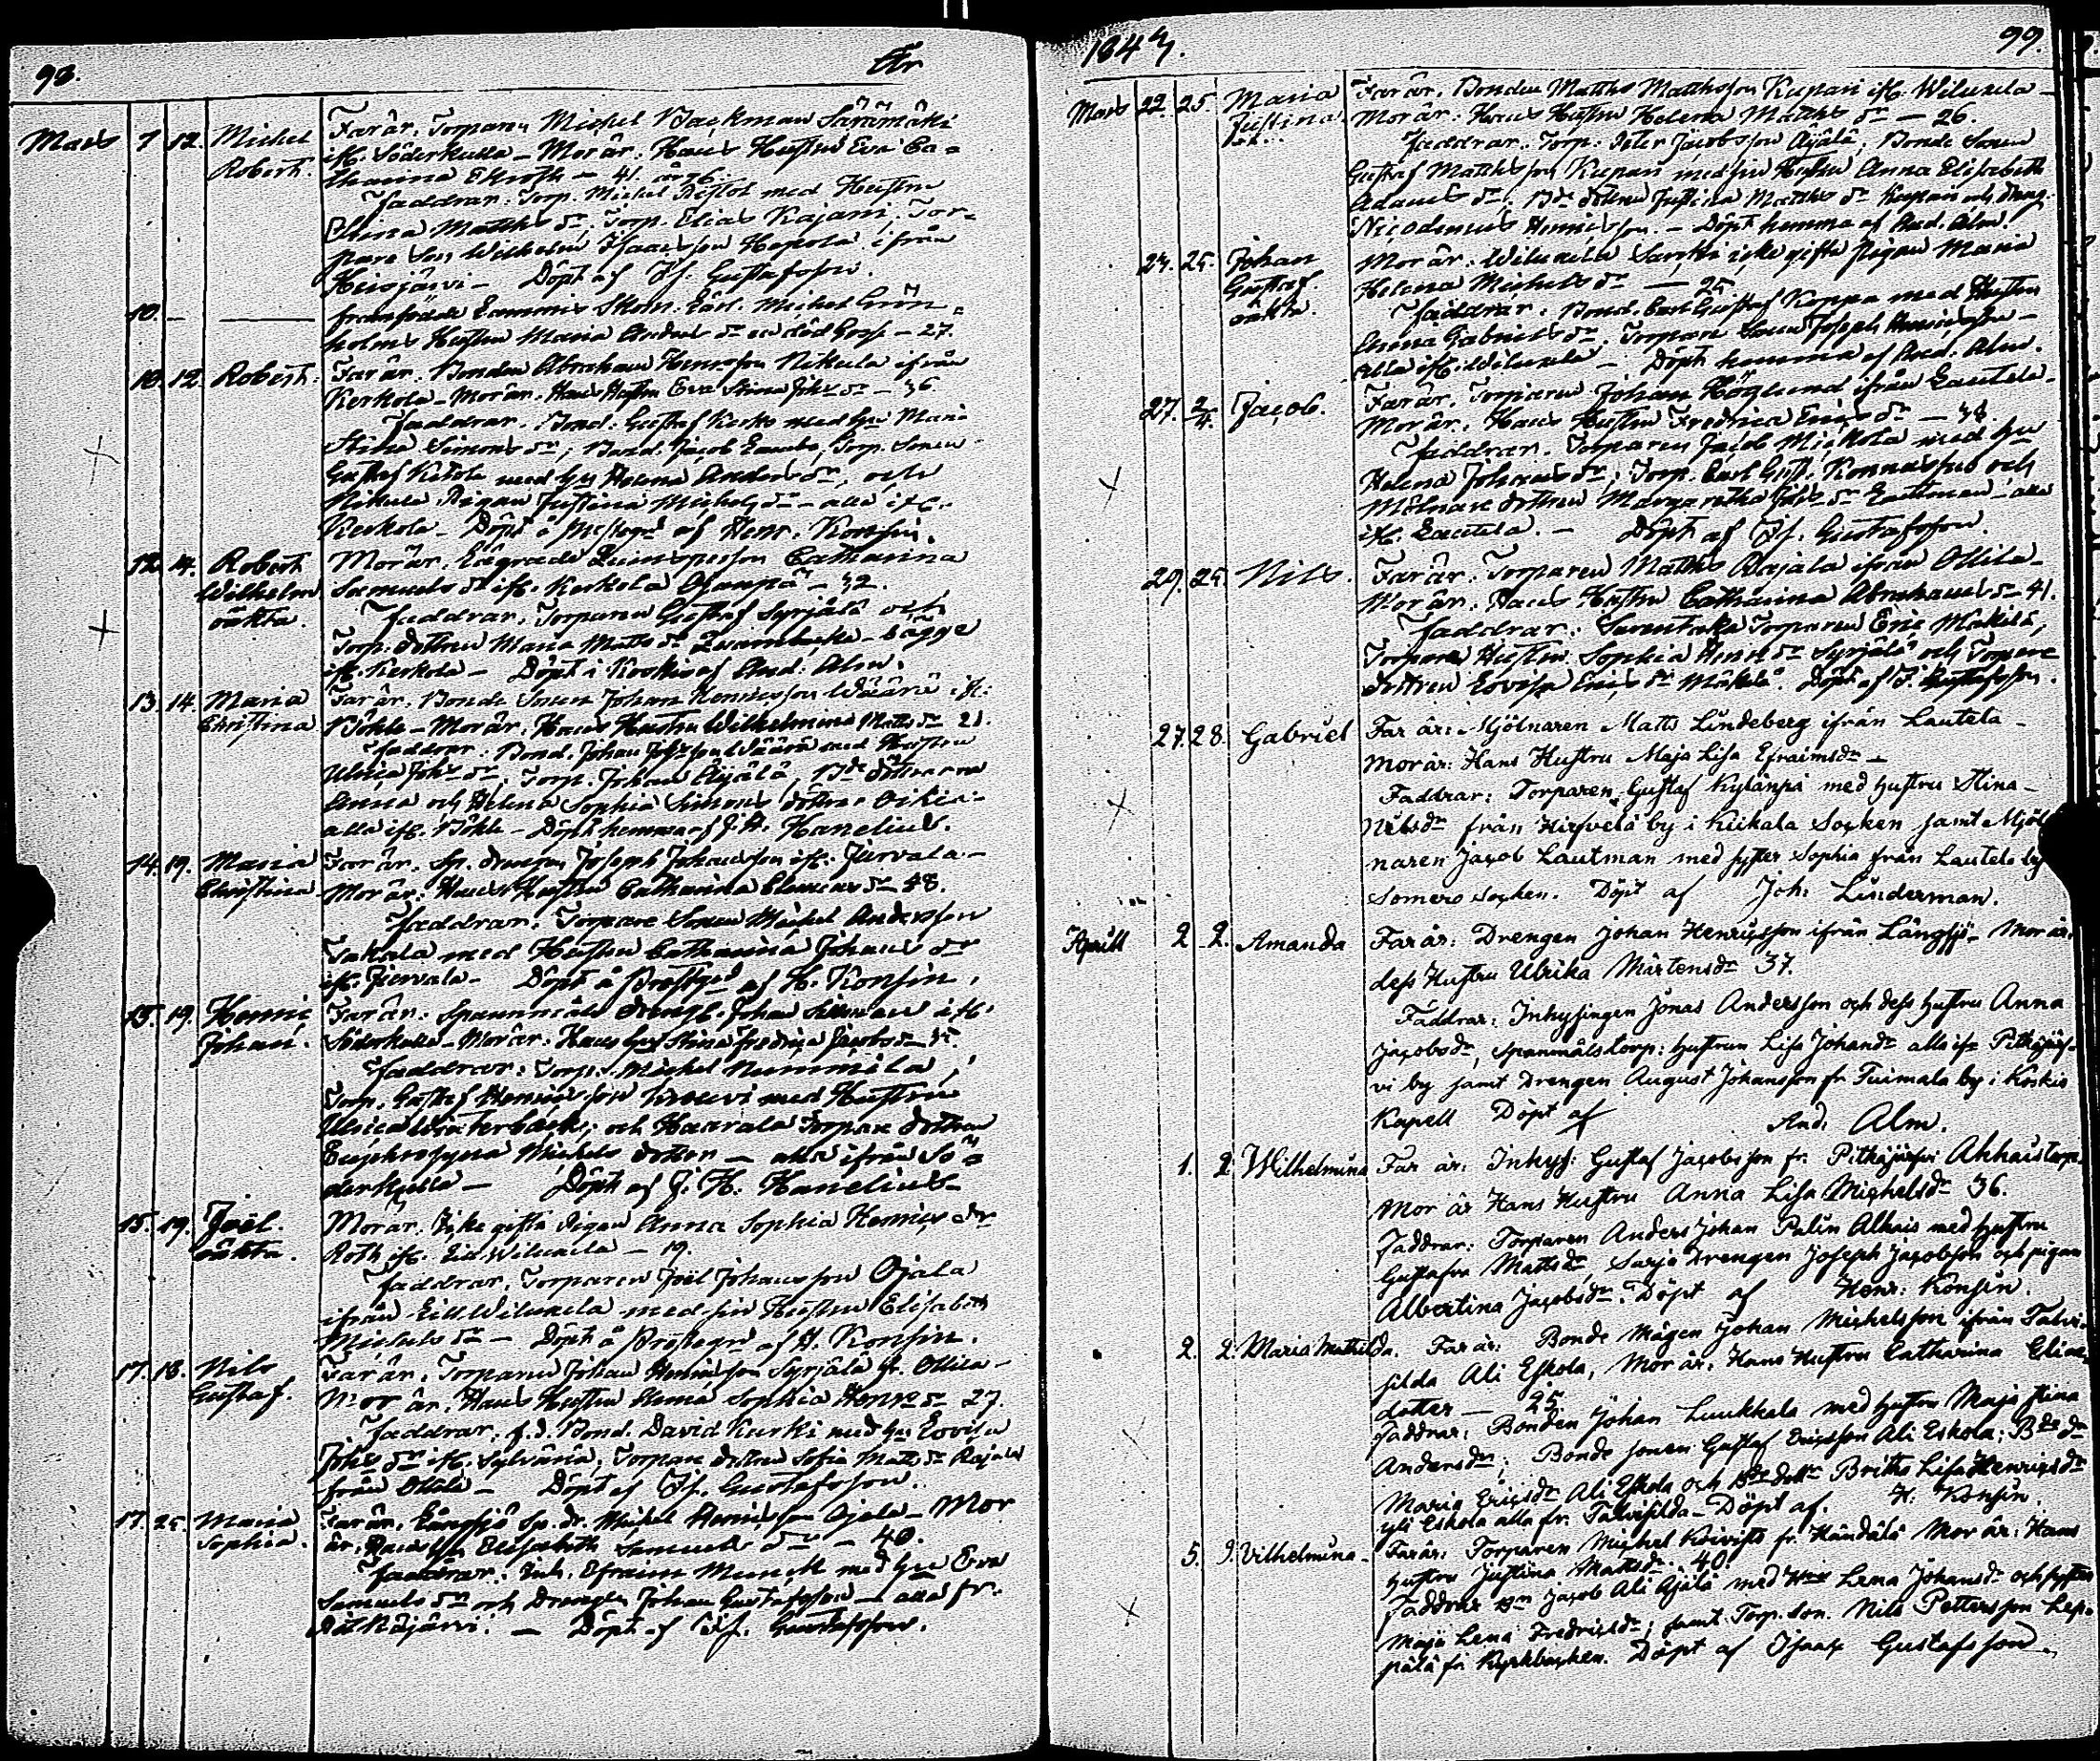 98.
År
Mars 7 12. Michel Far är. Torparen Michel Backman Särämäki
Robert. ifr. Söderkulla – Mor är: Hans Hustru Eva Ca=
tharina Ekroth – 41.
Faddrar: Torp. Michel med Hustru
Stina Matths dr, Torp. Elias Kajani, Tor=
pare Son Wilhelm Isaacsson Hakola ifrån
Heisjärvi – Döpt af Is. Gustafsson.
10. – — framfödde Michel Grön=
holms Hustru Maria Anders dr – 27.
10. 12. Robert. Far är. Bonden Abraham Henrsson Nikula ifrån
Kerkola – Mor är. Hans Hustru Eva Stina Johs dr – 36
Faddrar. Bond. Gustaf med Hu Maria
Stina Simons dr; Bond. Jacob Torp. Sonen
Gustaf Kitola med Hu Helena Anders dr, och
Nikula Pigan Justina Michels dr – alla ifr.
Kerkola – Döpt å af Henr. Konsin.
12. 14. Robert Mor är. Catharina
Wilhelm Samuels dr ifr. Kerkola – 32.
oäkta. Faddrar. Torparen Gustaf Syrjälä och
Torp. dottren Maria Matts dr – bägge
ifr. Kerkola – Döpt i Koskis af And. Alm.
13. 14. Maria Far är. Bonde Sonen Johan Henricsson Wäärä ifr.
Christina Pöhle – Mor är. Hans Hustru Wilhelmina Matts dr 21.
Faddrar: Bond. Johan Johsson Wäärä med Hustru
Ulrica Johs dr, Torp. Johan Äijälä, Bde döttrarna
Anna och Helena Sophia Simons döttrar
alla ifr. Pöhle – Döpt hemma af J. H. Hanelius.
14. 19. Maria Far är. Sp. drengen Joseph Johansson ifr. Jurvala –
Christina Mor är. Hans Hustru Catharina Clemens dr 48.
Faddrar. Torpare Sonen Michel Andersson
Takala med Hustru Catharina Johans dr
ifr. Jurvala – Döpt å Prostgd af H. Konsin.
15. 19. Henric Far är. Spannmåls drenge. Johan ifr.
Johan. Söderkulla – Mor är. Hans Hu Stina Fredrica Jacobs dr
Faddrar: Torp. Michel Nummila,
Torp. Gustaf Henricsson med Hustru
Ulrica Winterbäck, och Haarala Torpare dottren
Euphrosyna Michels dotter – alla ifrån Sö=
derkulla – Döpt af J. H. Hanelius –
15. 19. Joël. Mor är. Icke gifta Pigan Anna Sophia Henrics dr
oäkta. Roth ifr. Wiluxela – 19.
Faddrar. Torparen Joël Johansson Ojala
ifrån Wiluxela med sin Hustru Elisabeth
Michels dr – Döpt å Prostegrd af H. Konsin.
17. 18. Nils Far är. Torparen Johan Henricsson Syrjälä fr. Ollila –
Gustaf. Mor är. Hans Hustru Anna Sophia Henrs dr 27.
Faddrar. f.d. Bond. David Kurki med Hu Lovisa
Johs dr ifr. Sylvänä, Torpare dottren Sofia Matts dr Rajala
från Ollila – Döpt af Is. Gustafsson.
17. 25. Maria Far är. Långsjö Sp. dr. Michel Henricsson Ojala – Mor
Sophia. är. Hans Hu Elisabeth Samuels dr – 40.
Faddrar. Inh. Efraim Munck med Hu Eva
Samuels dr och Drengen Johan Gustafsson – alla fr.
Pitkäjärvi. – Döpt af Is. Gustafsson.
1847.
99.
Mars 22. 25. Maria Far är. Bonden Matths Matthsson Kupari ifr. Wiluxela –
Justina. Mor är. Hans Hustru Helena Matths dr – 26.
Faddrar. Torp. Peter Jacobsson Äijälä, Bonde Sonen
Gustaf Matthsson Kupari med sin Hustru Anna Elisabeth
Adams dr; Bde dottren Justina Matths dr Kupari och Dreng.
Nicodemus Henricsson. – Döpt hemma af And. Alm.
24. 25. Johan Mor är. Wiluxela icke gifta Pigan Maria
Gustaf. Helena Michels dr – 25
oäkta. Faddrar. Bond. Carl Gustaf Koppa med Hustru
Gabriels dr. Torpare Sonen Joseph Henricsson –
alla ifr. Wiluxela – Döpt hemma af And. Alm.
27. 2/4. Jacob. Far är. Torparen Johan Höglund ifrån Lautela –
Mor är. Hans Hustru Fredrica Erics dr – 38.
Faddrar. Torparen Jacob Mickola med Hu
Helena Johans dr; Torp. Carl Gust. och
Mölnare dottren Margaretha dr Lautman – alla
ifr. Lautela. – Döpt af Is. Gustafsson.
29. 25. Nils. Far är. Torparen Matths Rajala ifrån Ollila –
Mor är. Hans Hustru Catharina Abrahams dr 41.
Faddrar: Torparen Eric Mäkilä,
Torpare Hustru Sophia Henrs dr Syrjälä och Torpare
dottren Lovisa Erics dr Mäkilä. Döpt af I. Gustafsson.
27. 28. Gabriel Far är: Mjölnaren Matts Lindeberg ifrån Lautela –
Mor är: Hans Hustru Maja Lisa Efraimsdr –
Faddrar: Torparen Gustaf Kylänpä med hustru Stina –
Nilsdr från Hirsvelä by i Kiikala Socken samt Mjöl
naren Jacob Lautman med syster Sophia från Lautela by
Somero socken. Döpt af Joh: Linderman.
Aprill 2 2. Amanda Far är: Drengen Johan Henricsson ifrån Långsjö – Mor är:
dess Hustru Ulrika Mårtensdr 37.
Faddrar: Inhysingen Jonas Andersson och dess hustru Anna
Jacobsdr, Spanmålstorp: hustrun Lisa Johansdr alla ifr Pitkäjär=
vi by samt Drengen August Johansson fr. Tuimala by i Koskis
Kapell Döpt af And: Alm.
1. 2. Wilhelmina Far är: Inhys: Gustaf Jacobsson fr. Pitkäjärvi Ahhais torp.
Mor är Hans Hustru Anna Lisa Michelsdr 36.
Faddrar: Torparen Anders Johan Palin Alhais med hustru
Gustafva Mattsdr, Sarja Drengen Joseph Jacobsson och pigan
Albertina Jacobsdr. Döpt af Henr: Konsin.
2. 2. Maria Mathilda. Far är: Bonde Mågen Johan Michelsson ifrån Talvi=
silda Ali Eskola, Mor är: Hans Hustru Catharina Elias
dotter — 25
Faddrar: Bonden Johan Luukkala med hustru Maja Stina
Andersdr; Bonde sonen Gustaf Ericsson Ali Eskola; Bde dr
Maria Ericsdr Ali Eskola och Bde dottr Britta Lisa Henricsdr
Yli Eskola alla fr. Talvisilda – Döpt af. H. Konsin.
5. 9. Vilhelmina – Far är: Torparen Michel Koivisto fr. Händälä Mor är: Hans
hustru Justina Mattsdr. 40
Faddrar Bn Jacob Ali Äjälä med Hu Lena Johansdr och syster
Maja Lena Fredricsdr; samt Torp. Son. Nils Pettersson Lep=
pälä fr. Kyrkbacken. Döpt af Isaac Gustafsson.